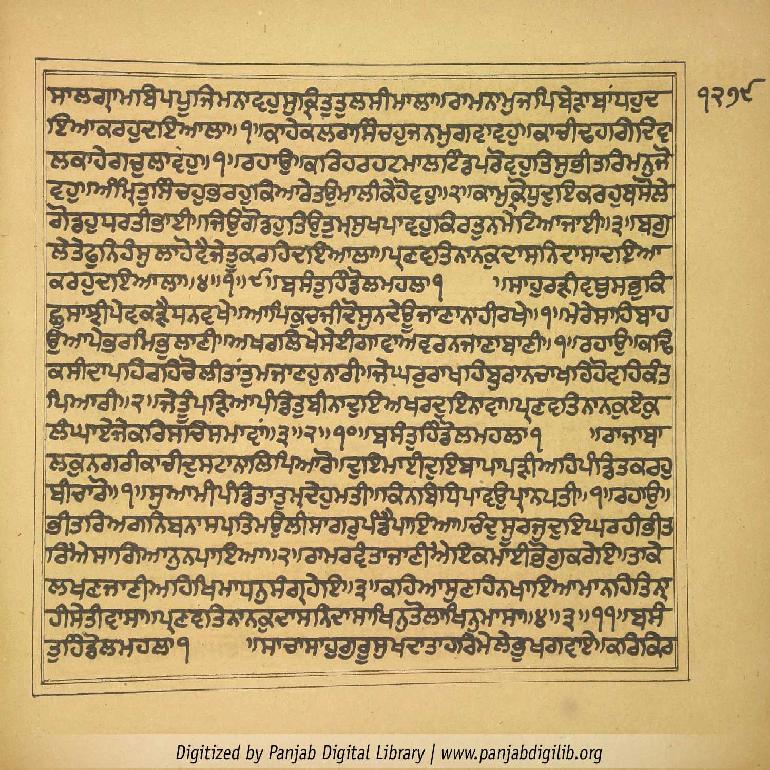 ਸਾਲਗ੍ਰਾਮਬਿਪਪੂਜਿਮਨਾਵਹੁਸੁਕ੍ਰਿਤੁਤੁਲਸੀਮਾਲਾ॥ਰਾਮਨਾਮੁਜਪਿਬੇੜਾਬਾਂਧਹੁਦ
੧੨੭੯
ਇਆਕਰਹੁਦਇਆਲਾ॥੧॥ਕਾਹੇਕਲਰਾਸਿੰਚਹੁਜਨਮੁਗਵਾਵਹੁ॥ਕਾਚੀਢਹਗਿਦਿਵਾ
ਲਕਾਹੇਗਚੁਲਾਵਹੁ॥੧॥ਰਹਾਉ॥ਕਰਿਹਰਿਹਟਮਾਲਟਿੰਡਪਰੋਵਹੁਤਿਸੁਭੀਤਰਿਮਨੁਜੋ
ਵਹੁ॥ਅੰਮ੍ਰਿਤੁਸਿੰਚਹੁਭਰਹੁਕਿਆਰੇਤਉਮਾਲੀਕੇਹੋਵਹੁ॥੨॥ਕਾਮੁਕ੍ਰੋਧੁਦੁਇਕਰਹੁਬਸੋਲੇ
ਗੋਡਹੁਧਰਤੀਭਾਈ॥ਜਿਉਗੋਡਹੁਤਿਉਤੁਮ੍ਸੁਖਪਾਵਹੁਕਿਰਤੁਨਮੇਟਿਆਜਾਈ॥੩॥ਬਗੁ
ਲੇਤੇਫੁਨਿਹੰਸੁਲਾਹੋਵੈਜੇਤੂਕਰਹਿਦਇਆਲਾ॥ਪ੍ਰਣਵਤਿਨਾਨਕੁਦਾਸਨਿਦਾਸਾਦਇਆ
ਕਰਹੁਦਇਆਲਾ॥੪॥੧॥੯॥ਬਸੰਤੁਹਿੰਡੋਲਮਹਲਾ੧ ॥ਸਾਹੁਰੜੀਵਥੁਸਭੁਕਿ
ਛੁਸਾਝੀਪੇਵਕੜੈਧਨਵਖੇ॥ਆਪਿਕੁਚਜੀਦੋਸੁਨਦੇਊਜਾਣਾਨਾਹੀਰਖੇ॥੧॥ਮੇਰੇਸਾਹਿਬਾਹ
ਉਆਪੇਭਰਮਿਭੁਲਾਣੀ॥ਅਖਰਲਿਖੇਸੇਈਗਾਵਾਅਵਰਨਜਾਣਾਬਾਣੀ॥੧॥ਰਹਾਉ॥ਕਢਿ
ਕਸੀਦਾਪਹਿਰਹਿਚੋਲੀਤਾਂਤੁਮਜਾਣਹੁਨਾਰੀ॥ਜੇਘਰੁਰਾਖਹਿਬੁਰਾਨਚਾਖਹਿਹੋਵਹਿਕੰਤ
ਪਿਆਰੀ॥੨॥ਜੇਤੂੰਪੜਿਆਪੰਡਿਤੁਬੀਨਾਦੁਇਅਖਰਦੁਇਨਾਵਾ॥ਪ੍ਰਣਵਤਿਨਾਨਕੁਏਕੁ
ਲੰਘਾਏਜੇਕਰਿਸਚਿਸਮਾਵਾਂ॥੩॥੨॥੧੦॥ਬਸੰਤੁਹਿੰਡੋਲਮਹਲਾ੧ ॥ਰਾਜਾਬਾ
ਲਕੁਨਗਰੀਕਾਚੀਦੁਸਟਾਨਾਲਿਪਿਆਰੋ॥ਦੁਇਮਾਈਦੁਇਬਾਪਾਪੜੀਅਹਿਪੰਡਿਤਕਰਹੁ
ਬੀਚਾਰੋ॥੧॥ਸੁਆਮੀਪੰਡਿਤਾਤੁਮ੍ਦੇਹੁਮਤੀ॥ਕਿਨਬਿਧਿਪਾਵਉਪ੍ਰਾਨਪਤੀ॥੧॥ਰਹਾਉ॥
ਭੀਤਰਿਅਗਨਿਬਨਾਸਪਤਿਮਉਲੀਸਾਗਰੁਪੰਡੈਪਾਇਆ॥ਚੰਦੁਸੂਰਜੁਦੁਇਘਰਹੀਭੀਤ
ਰਿਐਸਾਗਿਆਨੁਨਪਾਇਆ॥੨॥ਰਾਮਰਵੰਤਾਜਾਣੀਐਇਕਮਾਈਭੋਗੁਕਰੇਇ॥ਤਾਕੇ
ਲਖਣਜਾਣੀਅਹਿਖਿਮਾਧਨੁਸੰਗ੍ਰਹੇਇ॥੩॥ਕਹਿਆਸੁਣਹਿਨਖਾਇਆਮਾਨਹਿਤਿਨ੍ਾ
ਹੀਸੇਤੀਵਾਸਾ॥ਪ੍ਰਣਵਤਿਨਾਨਕੁਦਾਸਨਿਦਾਸਾਖਿਨੁਤੋਲਾਖਿਨੁਮਾਸਾ॥੪॥੩॥੧੧॥ਬਸੰ
ਤੁਹਿੰਡੋਲਮਹਲਾ੧ ॥ਸਾਚਾਸਾਹੁਗੁਰੂਸੁਖਦਾਤਾਹਰਿਮੇਲੇਭੁਖਗਵਾਏ॥ਕਰਿਕਿਰ
Digitized by Panjab Digital Library | www.panjabdigilib.org